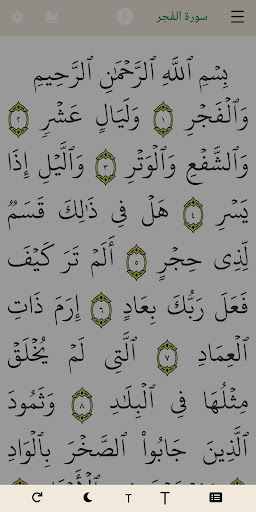 سورة الفجر
بِسۡمِ ٱللَّهِ ٱلرَّحۡمَٰنِ ٱلرَّحِيمِ
وَٱلۡفَجۡرِ ١ وَلَيَالٍ عَشۡرٖ ٢
وَٱلشَّفۡعِ وَٱلۡوَتۡرِ ٣ وَٱلَّيۡلِ إِذَا
يَسۡرِ ٤ هَلۡ فِي ذَٰلِكَ قَسَمٞ
لِّذِي حِجۡرٍ ٥ أَلَمۡ تَرَ كَيۡفَ
فَعَلَ رَبُّكَ بِعَادٍ ٦ إِرَمَ ذَاتِ
ٱلۡعِمَادِ ٧ ٱلَّتِي لَمۡ يُخۡلَقۡ
مِثۡلُهَا فِي ٱلۡبِلَٰدِ ٨ وَثَمُودَ
ٱلَّذِينَ جَابُواْ ٱلصَّخۡرَ بِٱلۡوَادِ
T T